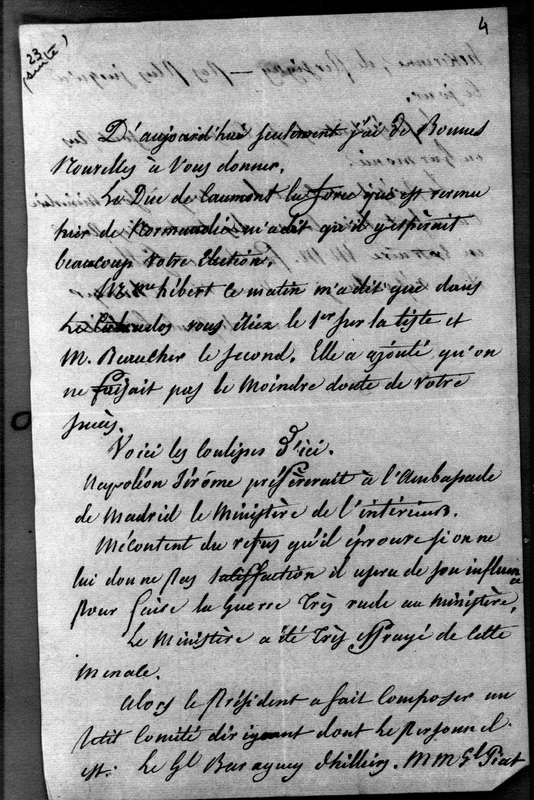 23
(suite)
4
D'aujourd'hui seulement j'ai de Bonnes
Nouvelles à Vous donner.
Le Duc de Caumont la force qui est revenu
hier de Normandie m'a dit qu'il y espérait
beaucoup Votre Election.
Mme hébert ce matin m'a dit que dans
le Calvados vous étiez le 1er sur la liste et
M. Beaucher le second. Elle a ajouté qu'on
ne faisait pas le Moindre doute de Votre
succès.
Voici les Coulisses d'ici.
Napoléon Jérôme préférerait à l'Ambassade
de Madrid le Ministère de l'intérieur.
Mécontent du refus qu'il éprouve si on ne
lui donne pas satisfaction il usera de son influence
pour faire la Guerre Très rude au Ministère.
Le Ministère a été Très effrayé de Cette
Menace.
Alors le Président a fait Composer un
Petit Comité dirigeant dont le Personnel
est: Le Gl Baraguey d'hilliers. MM Gl Piat